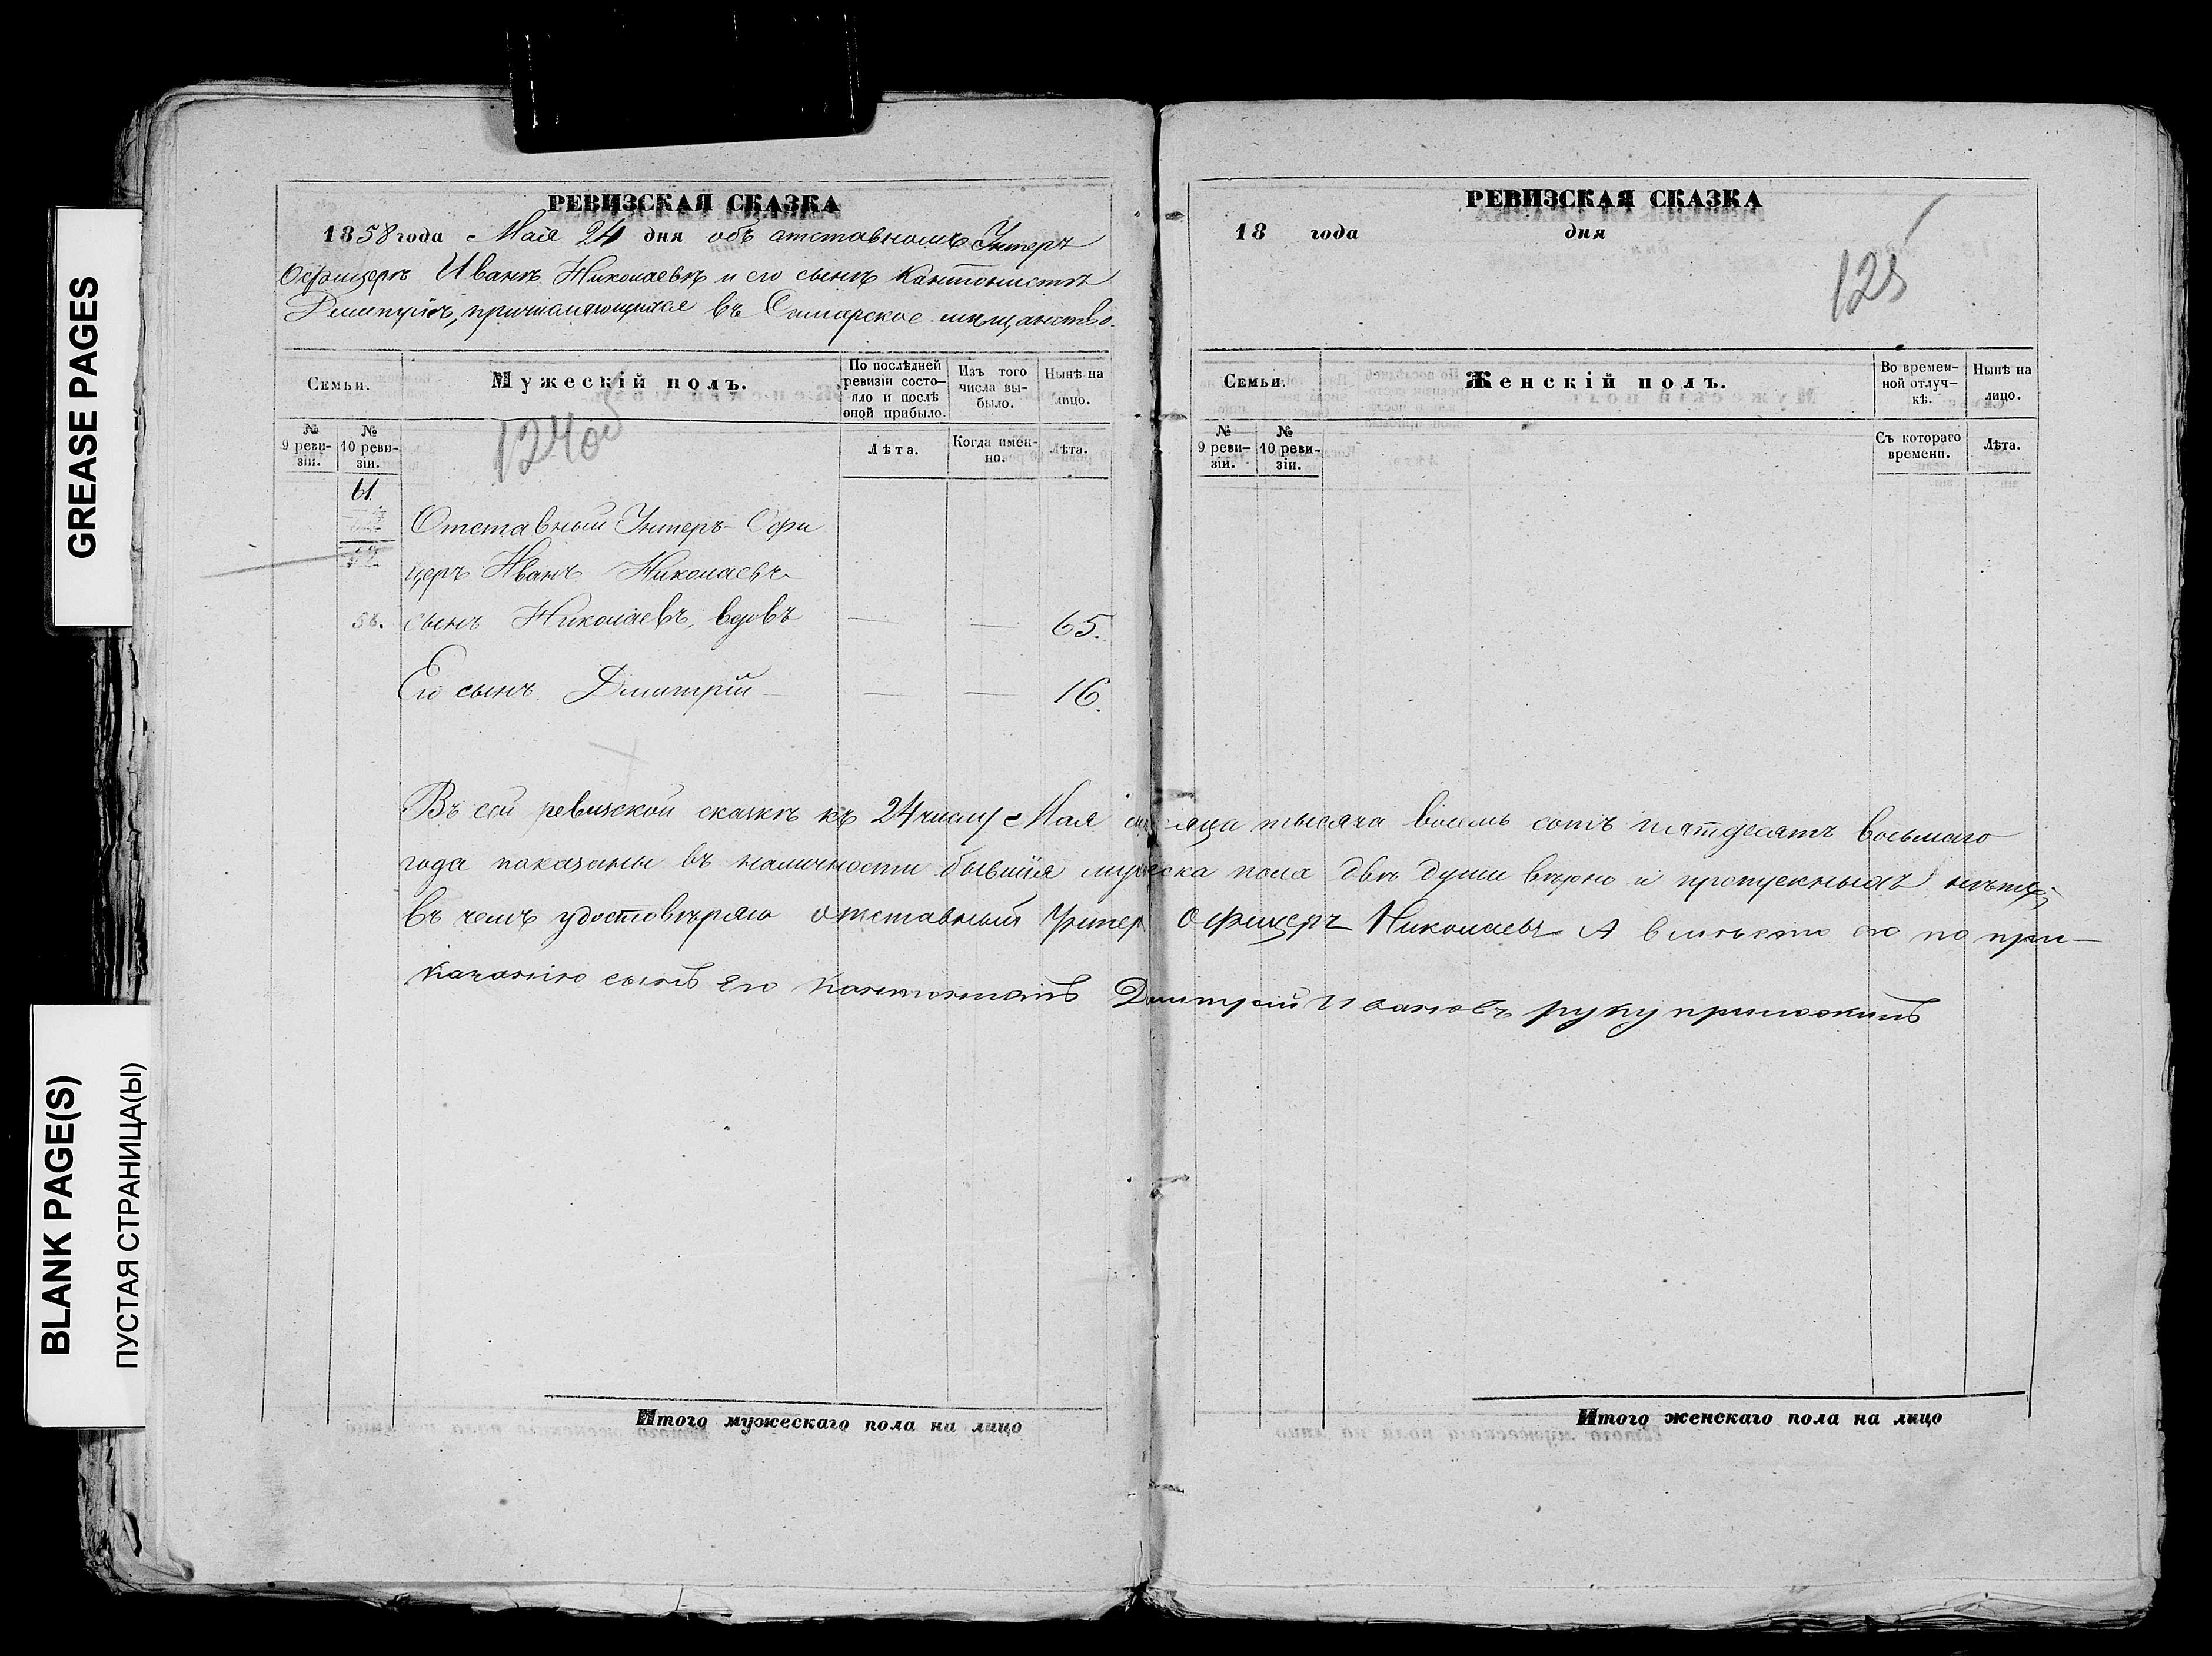 GREASE PAGES
BLANK PAGE(S)
ПУСТАЯ СТРАНИЦА(Ы)
РЕВИЗСКАЯ СКАЗКА
1858 года Мая 24 дня объ отставномъ Унтеръ
Офицерѣ Иванѣ Николаевѣ и его сынѣ Кантонистѣ
Дмитріѣ, причисляющихся въ Самарское мѣщанство.
Семьи.
Мужескій полъ.
По послѣдней ревизіи состояло и послѣ оной прибыло.
Изъ того числа выбыло.
Нынѣ на лицо.
№ 9 ревизіи.
№ 10 ревизіи.
124об
Лѣта.
Когда именно.
Лѣта.
61.
Отставный Унтеръ-Офи
церъ Иванъ Николаевъ
сынъ Николаевъ, вдовъ — — 65.
Его сынъ Дмитрій — — — 16.
Въ сей ревизской сказкѣ къ 24 числу Мая мѣсяца тысяча восемь сотъ пятдесятъ восьмаго
года показаны въ наличности бывшія мужеска пола двѣ души вѣрно и пропускныхъ нѣтъ;
въ чемъ удостовѣряю отставный Унтер Офицеръ Николаевъ А вмѣсто его по при—
казанію сынъ его Кантонистъ Дмитрей Ивановъ руку приложилъ
Итого мужескаго пола на лицо
РЕВИЗСКАЯ СКАЗКА
18 года дня
125
Семьи.
Женскій полъ.
Во временной отлучкѣ.
Нынѣ на лицо.
№ 9 ревизіи.
№ 10 ревизіи.
Съ котораго времени.
Лѣта.
Итого женскаго пола на лицо